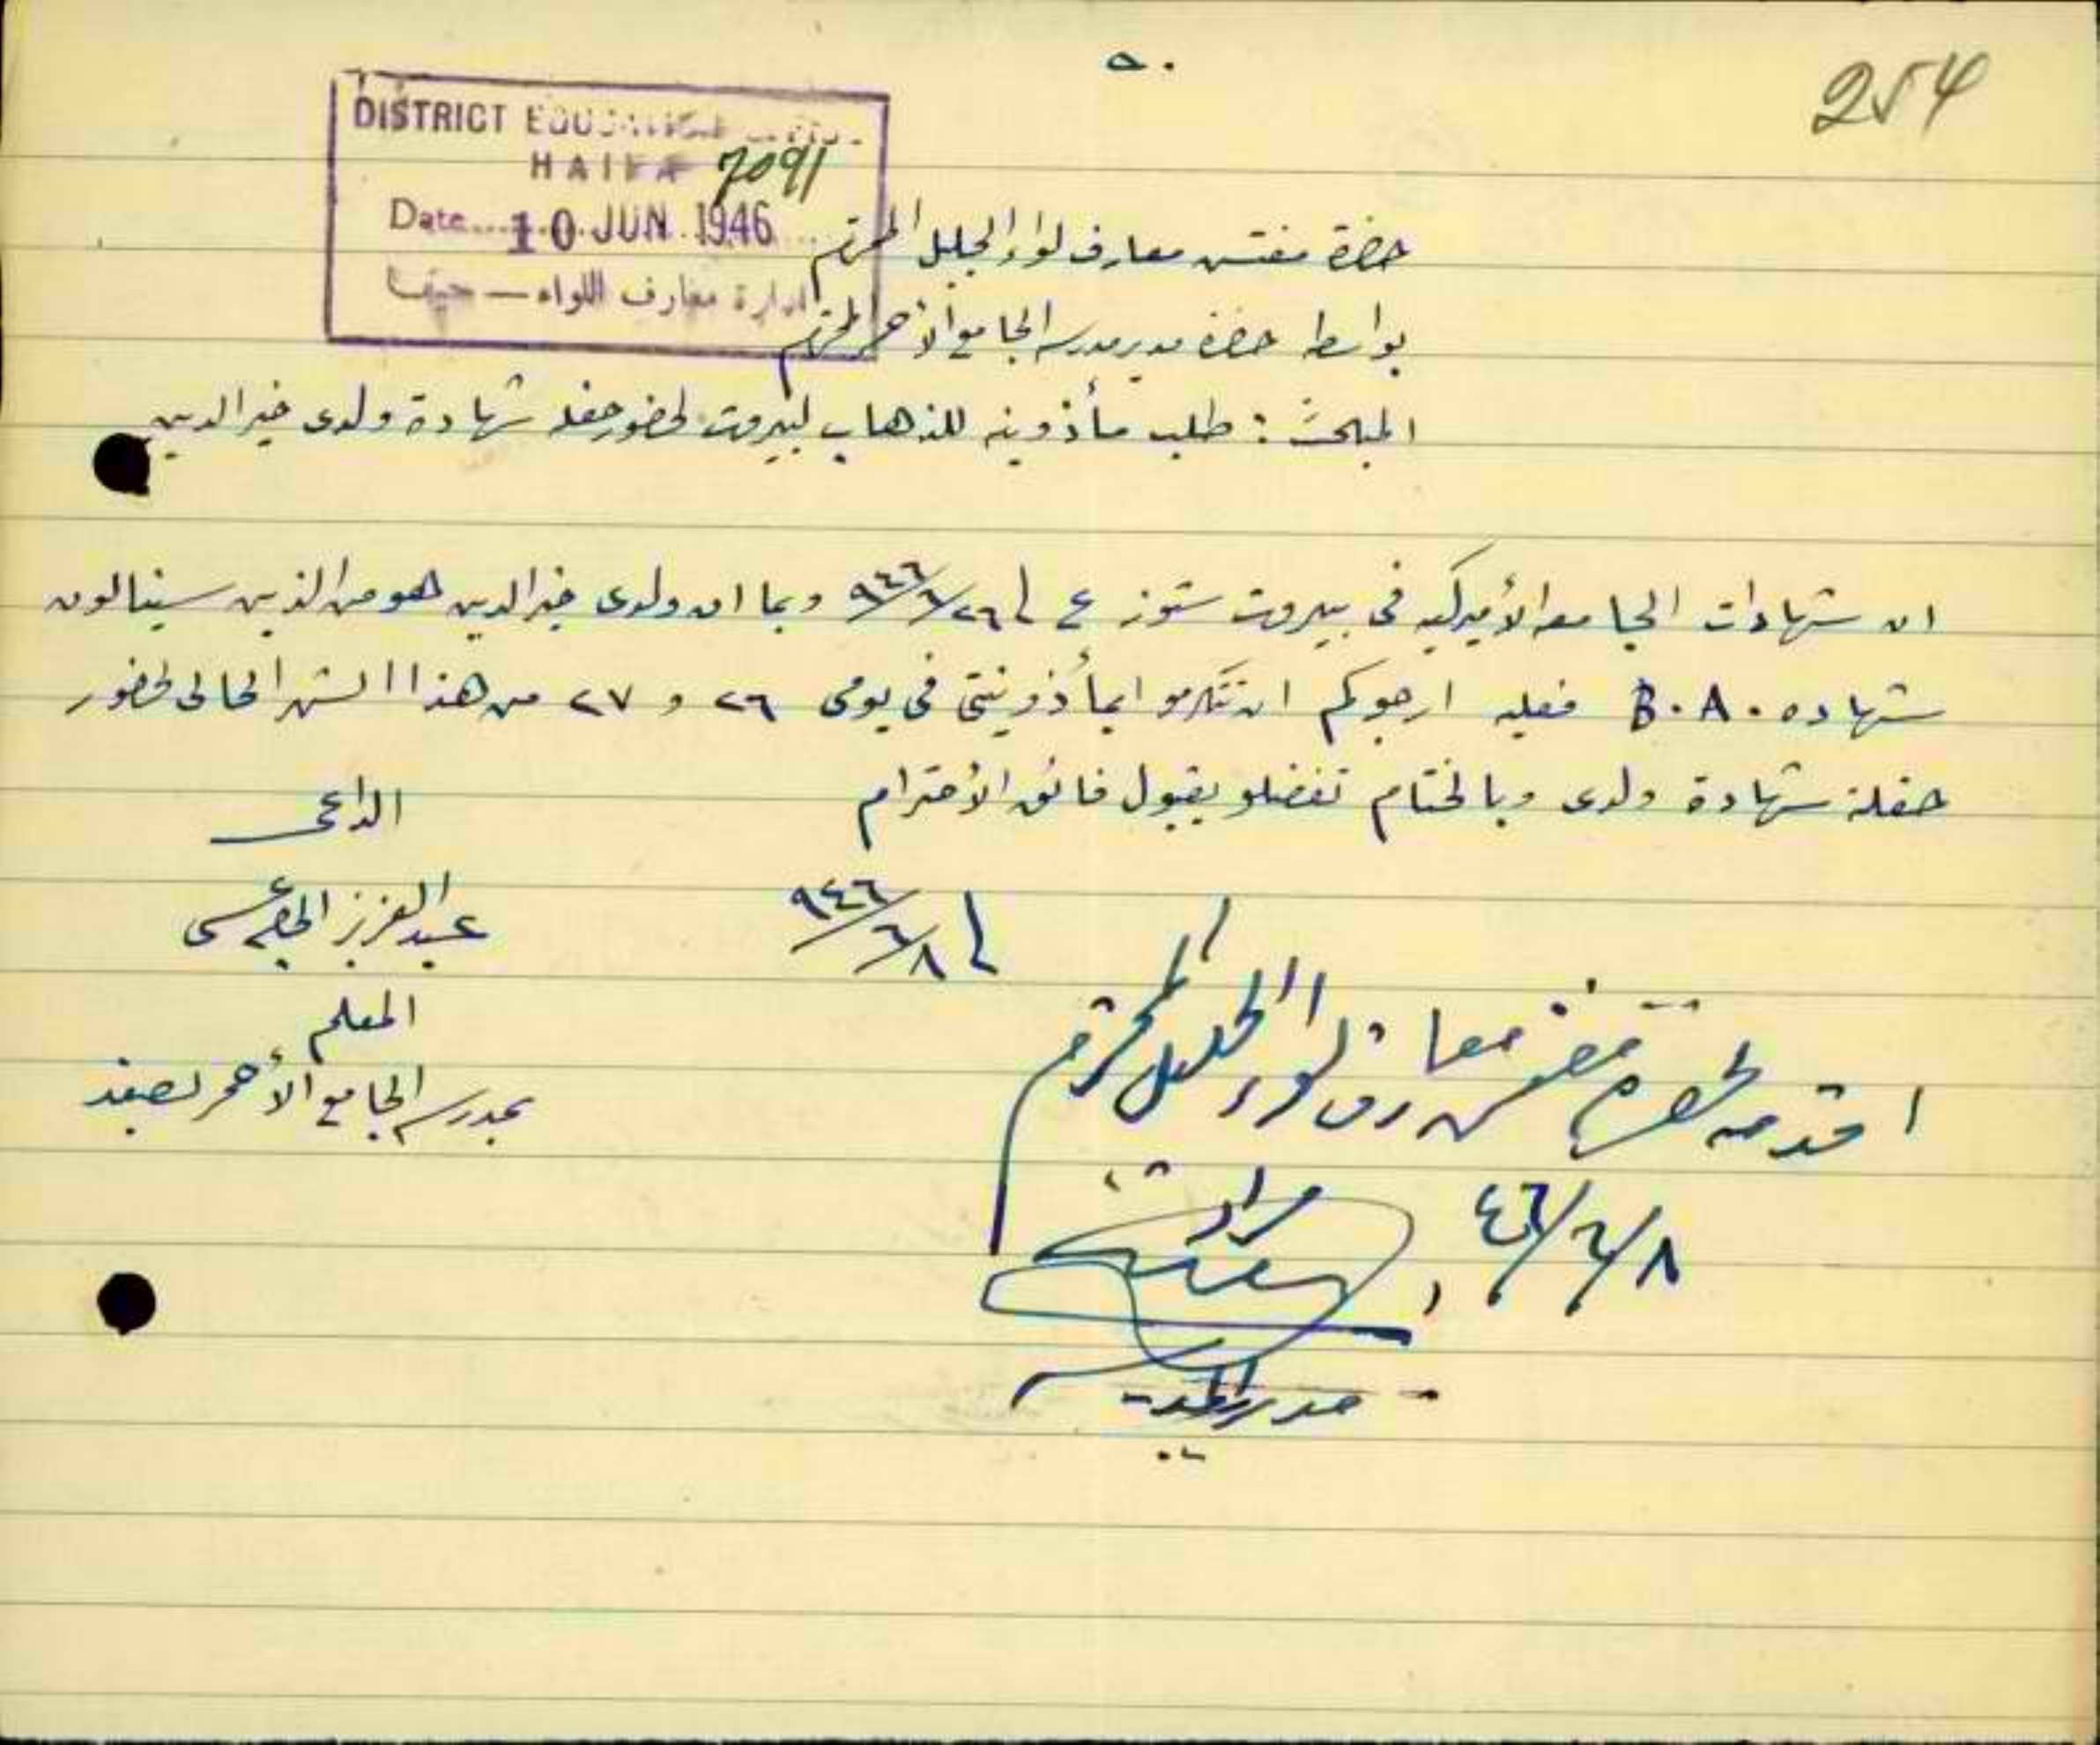 ٥٠
254
DISTRICT EDUCATION
HAIFA 7091
Date 10 JUN 1946
ادارة معارف اللواء — حيفا
حضرة مفتش معارف لواء الجليل المحترم
بواسطة حضرة مدير مدرسة الجامع الأحمر المحترم
المبحث : طلب مأذونية للذهاب لبيروت لحضور حفلة شهادة ولدى خير الدين
ان شهادات الجامعة الأميركية فى بيروت ستوزع فى ٢٦/٦/٩٤٦ وبما ان ولدى خير الدين هو من الذين سينالون
شهادة B.A. فعليه ارجوكم ان تتكرموا بمأذونيتى فى يومى ٢٦ و ٢٧ من هذا الشهر الحالى لحضور
حفلة شهادة ولدى وبالختام تفضلو بقبول فائق الأحترام
الداعى
٨/٦/٩٤٦
عبد العزيز
المعلم
بمدرسة الجامع الأحمر بصفد
اقدمه لحضرة مفتش معارف لواء الجليل المحترم
٨/٦/٤٦
مراد
مدير